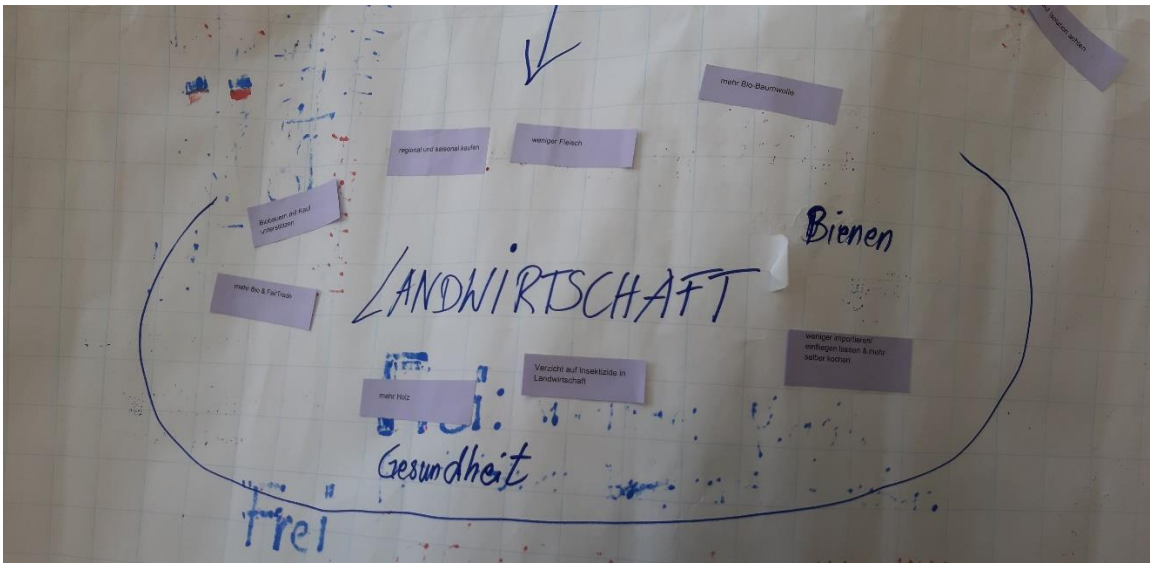 mehr Bio-Baumwolle
regional und saisonal kaufen
weniger Fleisch
Biobauern mit Kauf
unterstützen
Bienen
mehr Bio & FairTrade
LANDWIRTSCHAFT
weniger importieren/
einfliegen lassen & mehr
selber kochen
Verzicht auf Insektizide in
Landwirtschaft
mehr Holz
Gesundheit
Frei